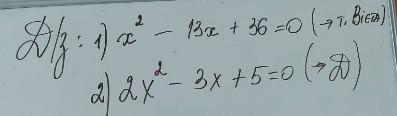 Д/з: 1) x² − 13x + 36 = 0 (→ т. Вієта)
2) 2x² − 3x + 5 = 0 (→ D)